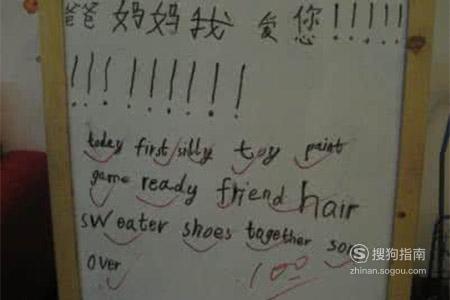 爸妈妈我爱您!!!!!
!!!!!!!!!
today first silly toy paint
game ready friend hair
sweater shoes tagether
over
100
搜狗指南
zhinan.sogou.com